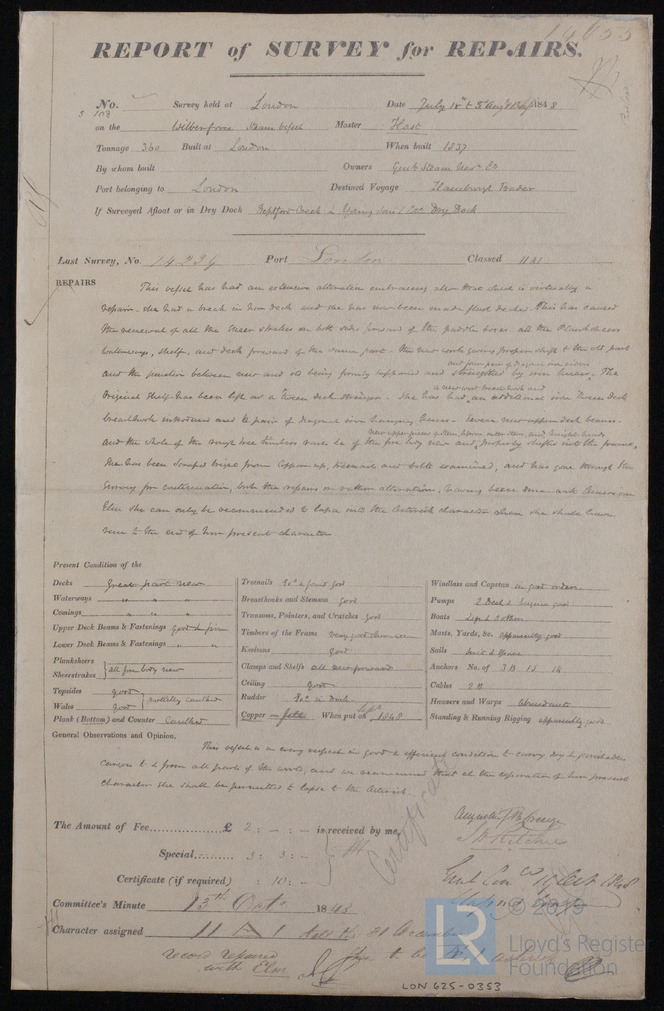 14655
REPORT of SURVEY for REPAIRS.
No. Survey held at London Date July 18th to 1848
on the Wilberforce Steam Vessel Master Hast
Tonnage 360 Built at London When built 1837
By whom built Owners Genl Steam Navn Co
Port belonging to London Destined Voyage Hamburgh Trader
If Surveyed Afloat or in Dry Dock Deptford Creek & Dry Dock
Last Survey, No. 14234 Port London Classed 11 A1
REPAIRS This vessel has had an extensive alteration embracing also that which is virtually a
repair. She had a break in her deck and she has now been made flush decked. This has caused
the renewal of all the sheer strakes on both sides forward of the paddle boxes. all the Planksheers
Waterways, shelfs, and deck forward of the same part. the new work giving proper shift to the old part
and four pair of diagonal iron riders
and the junction between new and old being firmly supported and strengthened by iron knees. The
a new breast hook and
Original Shelf has been left as a Tween deck stringer. She has had an additional iron Tween Deck
breasthook introduced and 12 pair of diagonal iron hanging knees. Seven new upper deck beams.
and the whole of the rough tree timbers in the fore body new and properly shifted into the frame,
She has been stripped from Copper up, treenails and bolts examined, and has gone through the
Survey for continuation, but the repairs or rather alteration, having been done with American
Elm she can only be recommended to lapse into the Asterisk character when she shall have
run to the end of her present character
Present Condition of the
Decks Great part new
Waterways " " "
Comings " " "
Upper Deck Beams & Fastenings Good & firm
Lower Deck Beams & Fastenings " "
Planksheers
Sheerstrakes } all fore body new
Topsides good
Wales good } caulked
Plank (Bottom) and Counter Caulked
Treenails Do & found good
Breasthooks and Stemson good
Transoms, Pointers, and Crutches good
Timbers of the Frame very good
Keelsons good
Clamps and Shelfs all new forward
Ceiling Good
Rudder Do
Copper When put on Septr 1848
Windlass and Capstan in good order
Pumps 2 Deck & good
Boats
Masts, Yards, &c. apparently good
Sails
Anchors No. of 3 B 1 S 1 K
Cables 2 B
Hawsers and Warps abundant
Standing & Running Rigging apparently good
General Observations and Opinion,
This vessel is in every respect in good & efficient condition to convey dry & perishable
cargoes to & from all parts of the world, and we recommend that at the expiration of her present
character she shall be permitted to lapse to the Asterisk.
The Amount of Fee £ 2 : - : - is received by me,
Special 3 : 3 : -
Certificate (if required) : 10 : -
Certificate
Augustin F B Creuze
J H Ritchie
Committee's Minute 13th Octr 1848
Character assigned 11 A 1
record repaired
with Elm
© 2019
LR
Lloyd's Register
Foundation
LON 625-0353